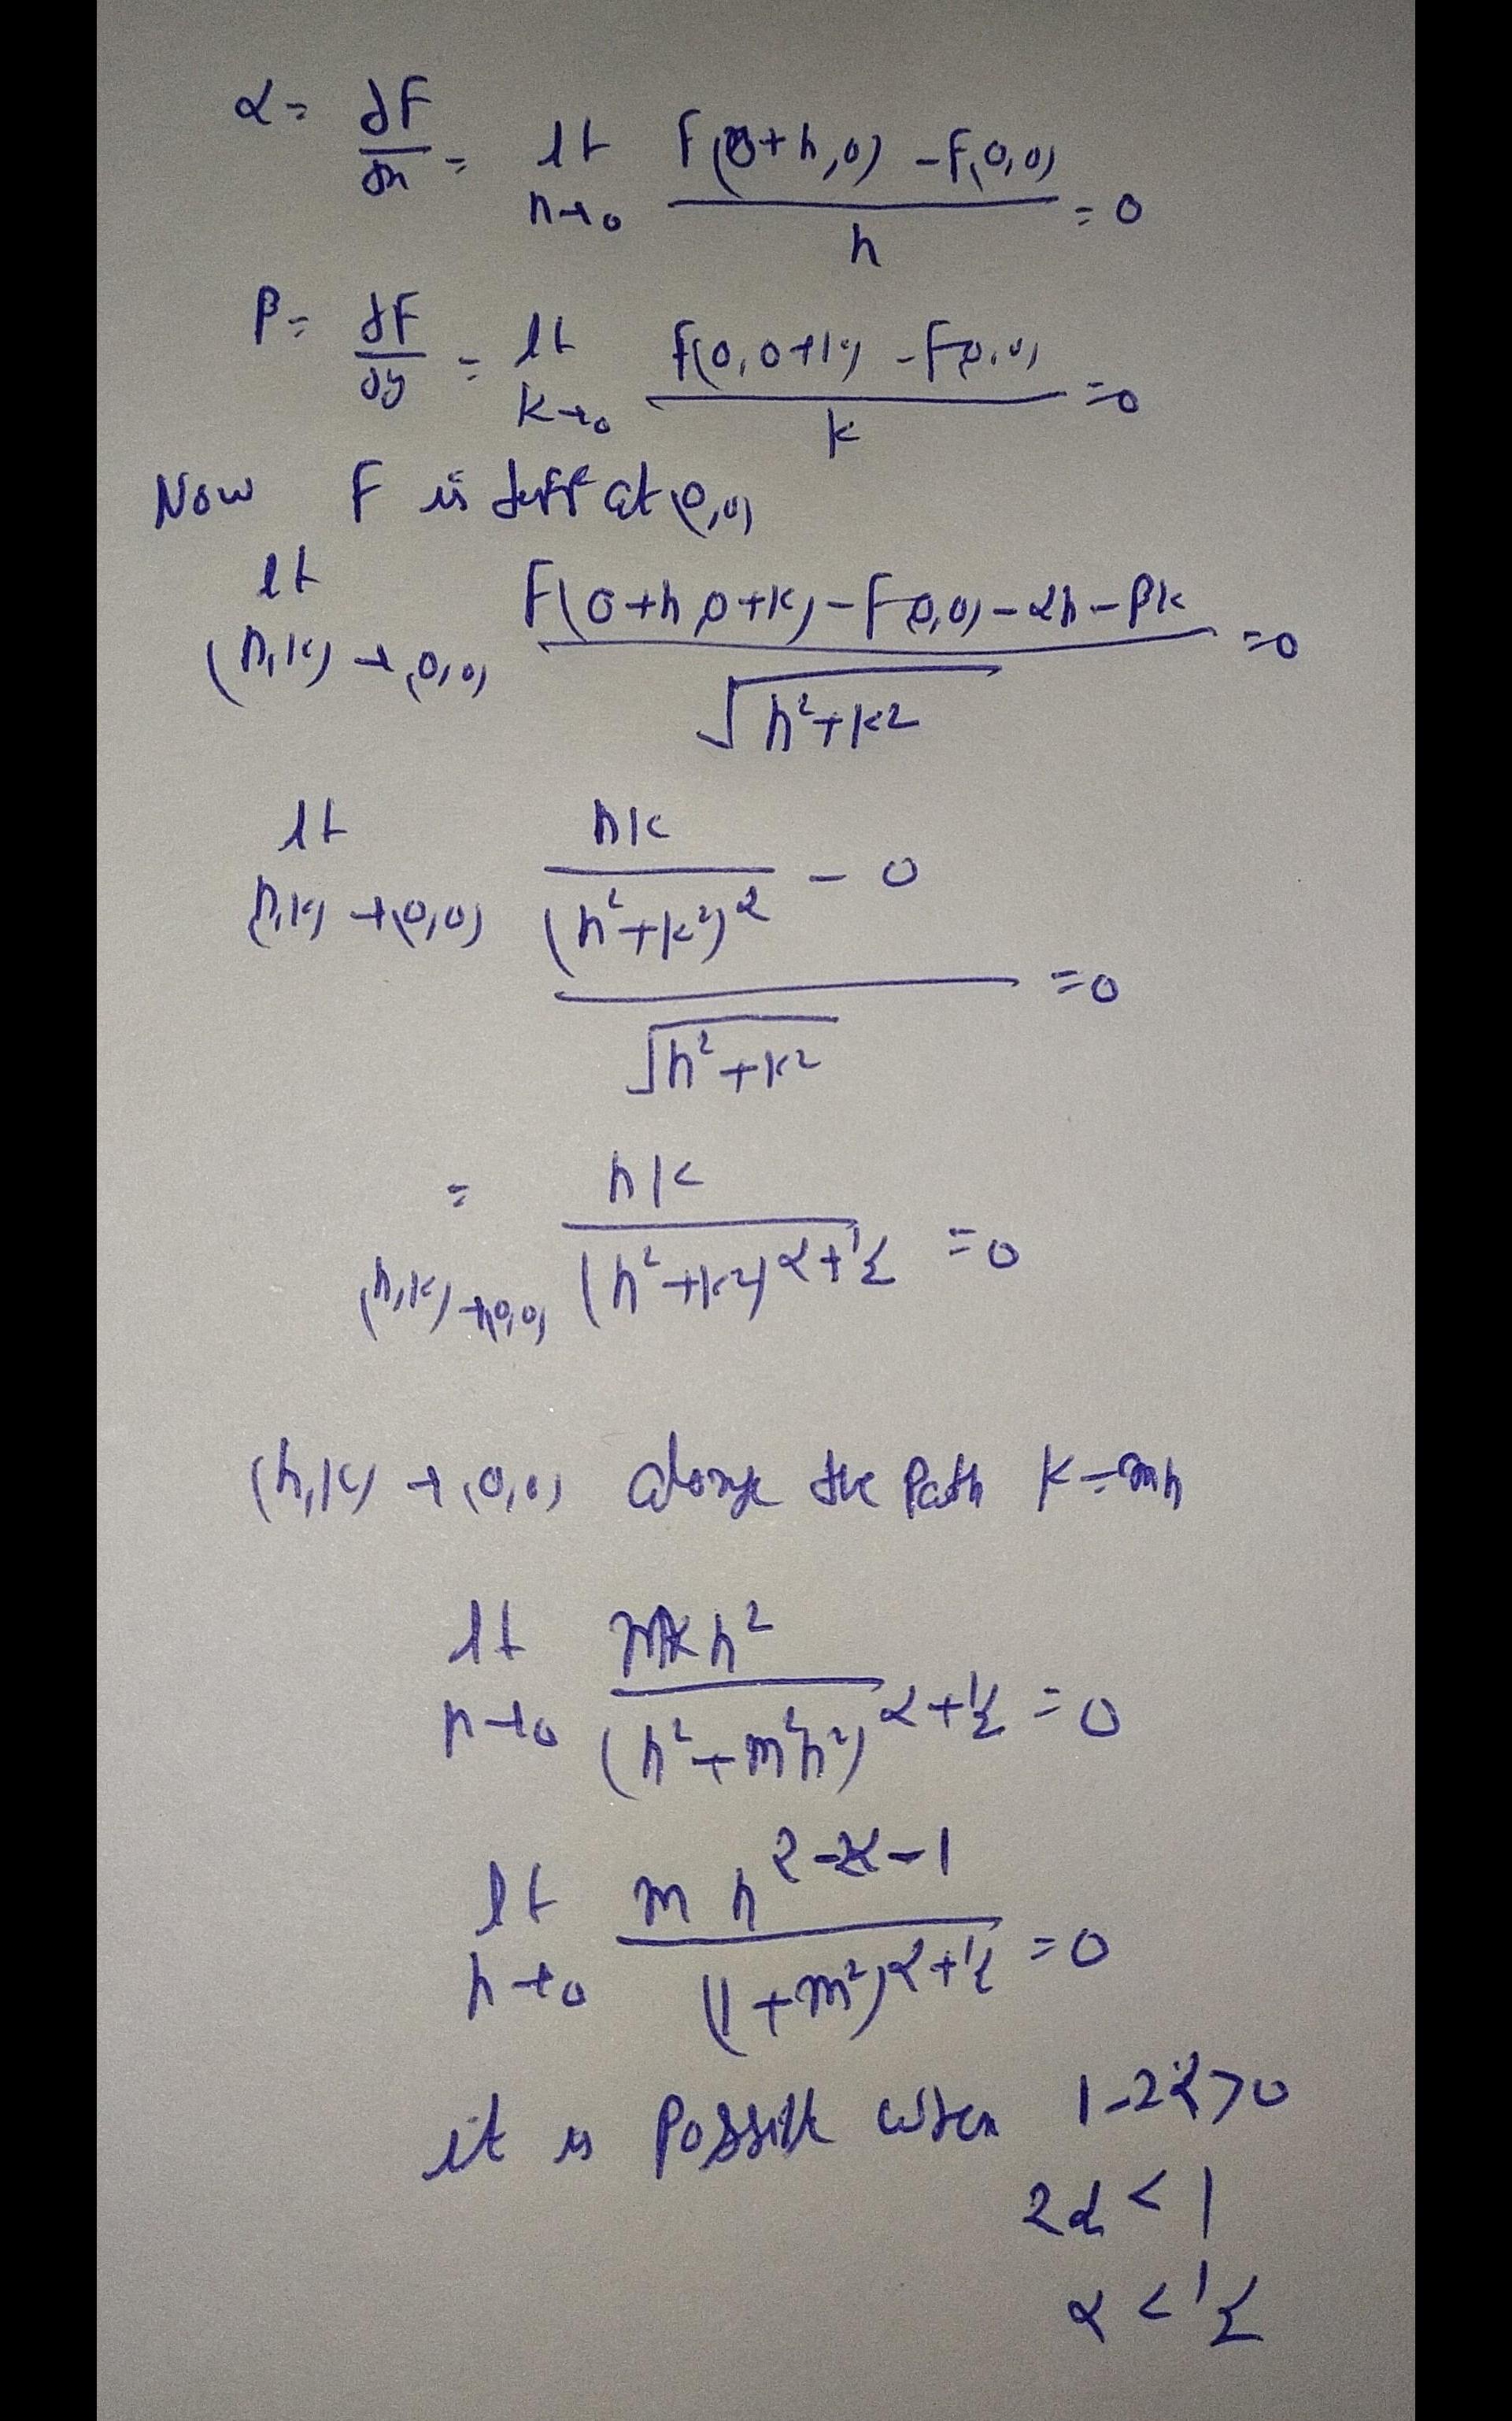 α = ∂F/∂x = lt h→0 F(0+h,0) - F(0,0) / h = 0
β = ∂F/∂y = lt k→0 F(0,0+k) - F(0,0) / k = 0
Now F is diff at (0,0)
lt (h,k)→(0,0) F(0+h,0+k) - F(0,0) - αh - βk / √h²+k² = 0
lt (h,k)→(0,0) hk / (h²+k²)^α - 0 / √h²+k² = 0
= (h,k)→(0,0) hk / (h²+k²)^α+½ = 0
(h,k)→(0,0) along the Path k=mh
lt h→0 m h² / (h²+m²h²)^α+½ = 0
lt h→0 m h^2-2α-1 / (1+m²)^α+½ = 0
it is Possible when 1-2α>0
2α < 1
α < ½